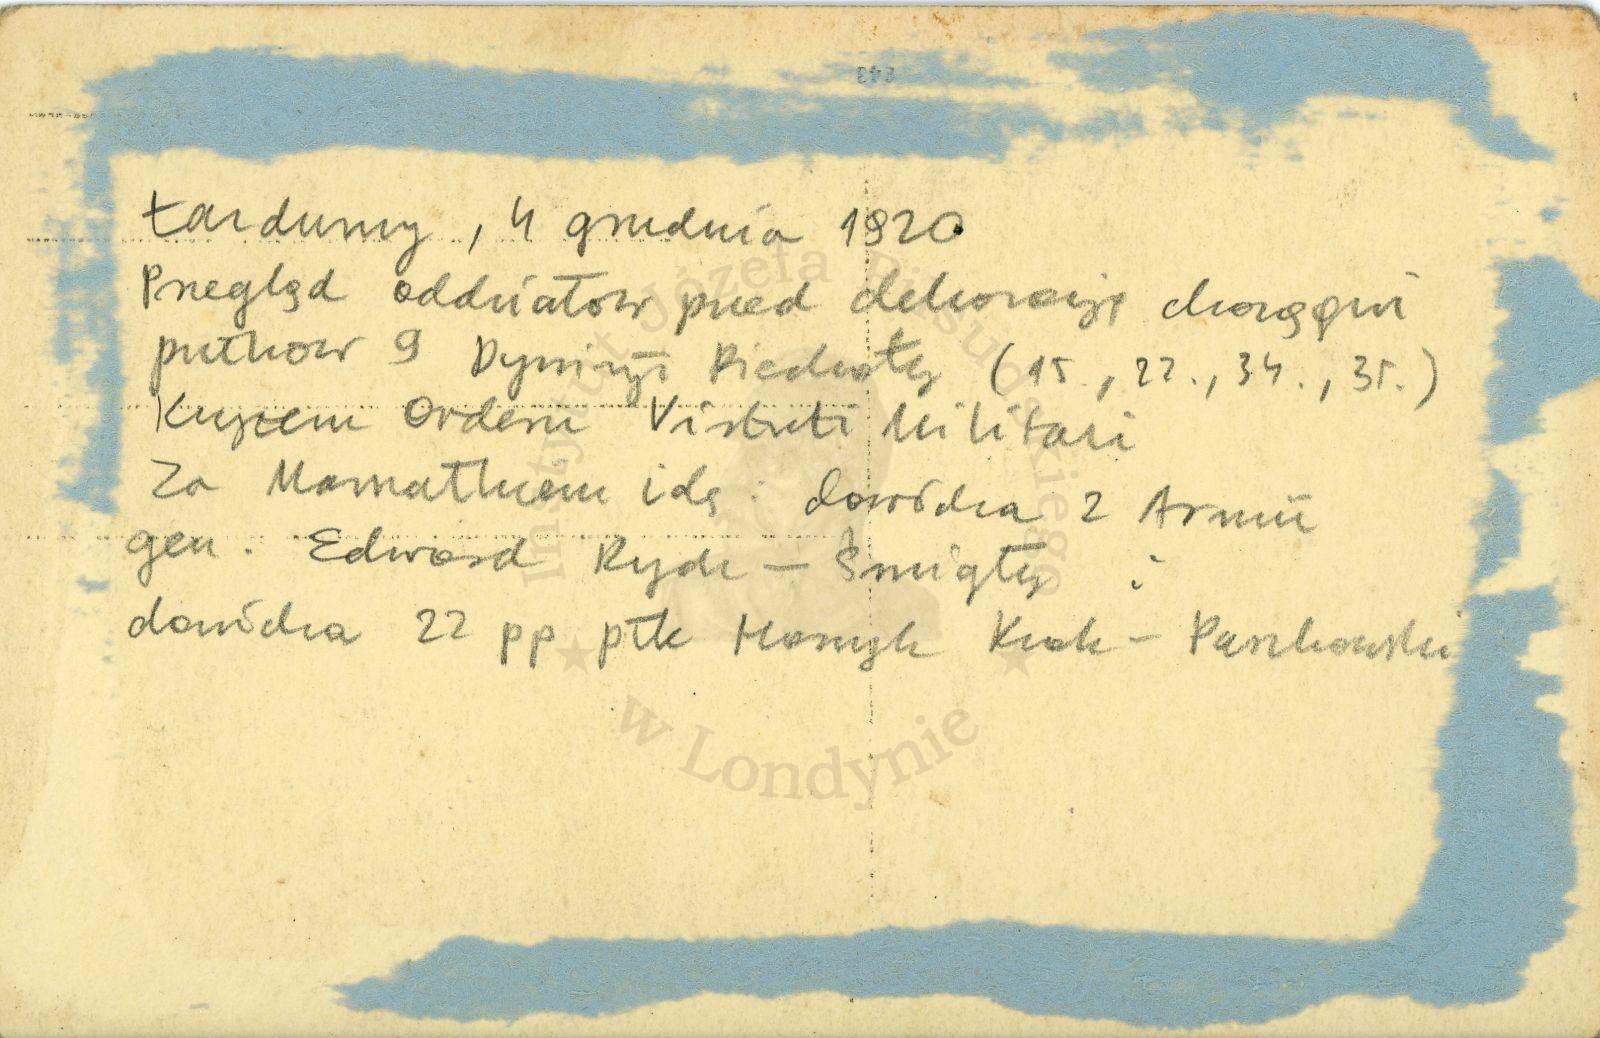 243
Żardumy, 4 grudnia 1920
Przegląd oddziałów przed dekoracją chorągwi
pułków 9 Dywizji Piechoty (15., 22., 34., 35.)
Krzyżem Orderu Virtuti Militari
Za Marszałkiem idą: dowódca 2 Armii
gen. Edward Rydz-Śmigły i
dowódca 22 pp płk Henryk Krok-Paszkowski
Instytut Józefa Piłsudskiego
w Londynie